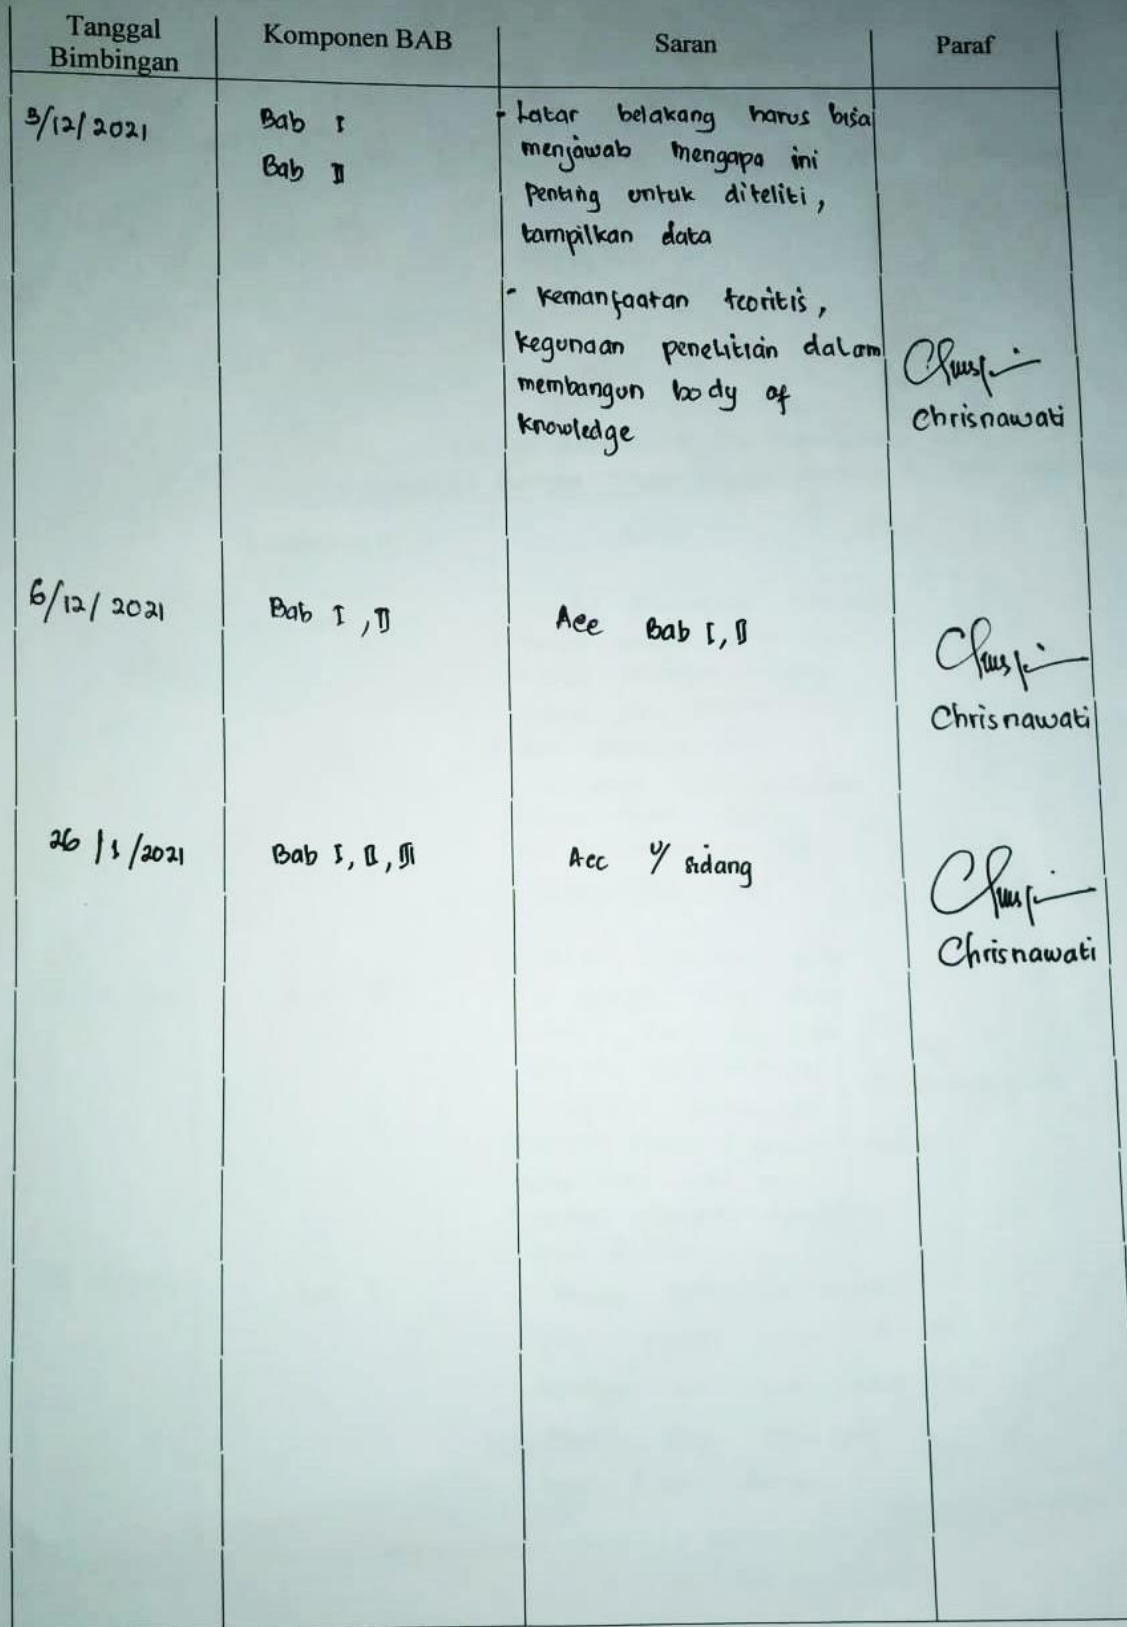 Tanggal Bimbingan
Komponen BAB
Saran
Paraf
3/12/2021
Bab I
Bab II
- Latar belakang harus bisa
menjawab mengapa ini
Penting untuk diteliti,
tampilkan data
- Kemanfaatan teoritis,
kegunaan penelitian dalam
membangun body of
knowledge
Chrisnawati
6/12/2021
Bab I, II
Acc Bab I, II
Chrisnawati
26/1/2021
Bab I, II, III
Acc u/ sidang
Chrisnawati